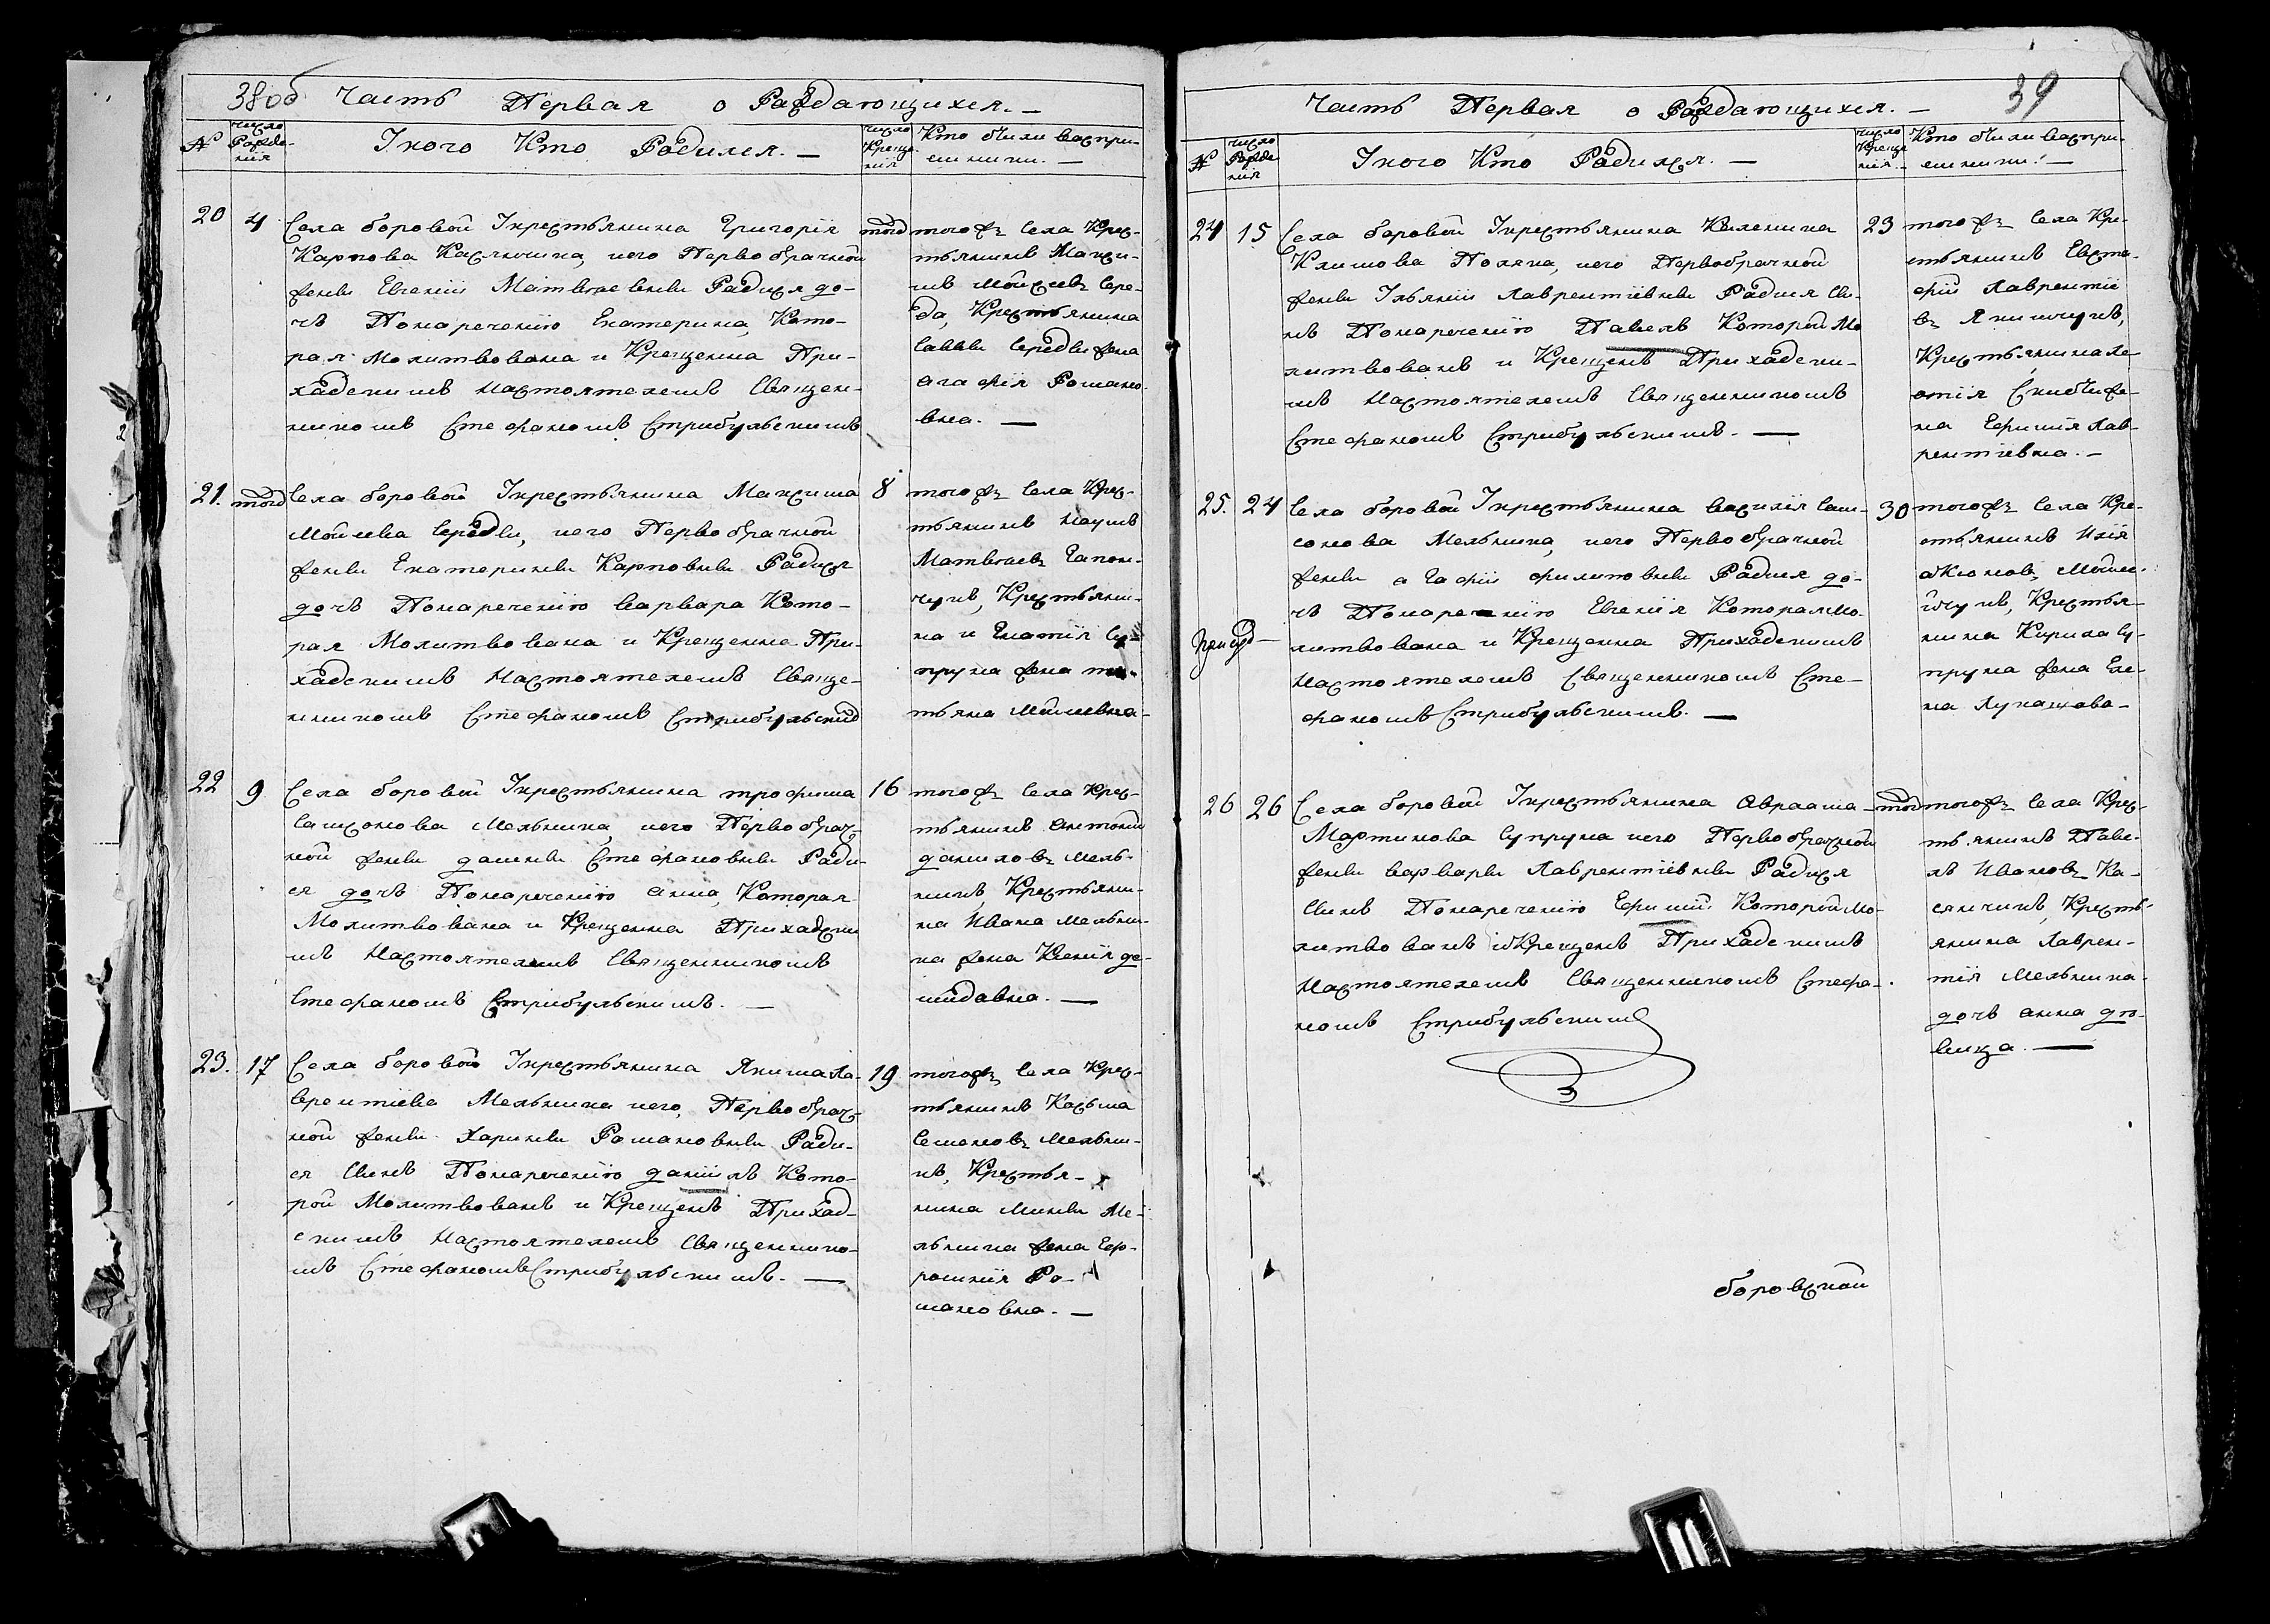 38об Часть Первая о Раждающихся. —
№
число Рожде-
ния
У кого Кто Родился. —
число
Креще-
нія
Кто были Воспри-
емники. —
20
4
Села боровой У крестьянина Григорія
Карпова Каслянчика, иего Первобрачной
жены Евгеніи Матвѣевны Родися до-
чь Понареченію Екатерина, Кото-
рая Молитвована и Крещенна При-
ходскимъ Настоятелемъ Священ-
никомъ Стефаномъ Стрибульскимъ
того ж села Крес-
тьянинъ Макси-
мъ Мойсеевъ Сере-
да, Крестьянина
Саввы Середы жена
Агафія Романо-
вна. —
21.
Села боровой У крестьянина Максима
Мойсеева Середы, иего Первобрачной
жены Екатерины Карповны Родися
дочь Понареченію Варвара Кото-
рая Молитвована и Крещенна При-
ходскимъ Настоятелемъ Священ-
никомъ Стефаномъ Стрибульским
8
того ж села Крес-
тьянинъ Наумъ
Матвѣевъ Гапон-
чукъ, Крестьяни-
на Игнатія Су-
пруна жена та-
тьяна Мойсеевна
22
9
Села боровой У крестьянина трофима
Самсонова Мельника, иего Первобрач-
ной жены домны Стефановны Роди-
ся дочь Понареченію анна, Которая
Молитвована и Крещенна Приходски
мъ Настоятелемъ Священникомъ
Стефаномъ Стрибульскимъ. —
16
того ж села Крес-
тьянинъ антоній
даниловъ Мель-
никъ, Крестьяни-
на Ивана Мельни-
ка жена Ксенія де-
мидовна. —
23.
17
Села боровой У крестьянина Якима Ла-
врентіева Мельника иего, Первобрач-
ной жены Харины Романовны Роди-
ся Сынъ Понареченію даніилъ Кото-
рой Молитвованъ и Крещенъ Приход-
скимъ Настоятелемъ Священнико-
мъ Стефаномъ Стрибульскимъ. —
19
того ж села Крес-
тьянинъ Косьма
Семеновъ Мельни-
къ, Крестья-
нина Мины Ме-
льника жена Евф-
росинія Ро-
мановна. —
39
Часть Первая о Раждающихся. —
№
число
Рожде
нія
У кого Кто Родился. —
число
Креще
нія. —
Кто были Воспри-
емники. —
24
15
Села боровой У крестьянина Килемина
Климова Поляка, иего Первобрачной
жены Ульяніи Лаврентіевны Родися Сы-
нъ Понареченію Павелъ Которой Мо
литвованъ и Крещенъ Приходски-
мъ Настоятелемъ Священникомъ
Стефаномъ Стрибульскимъ. —
23
того ж села Кре-
стьянинъ Евста-
фій Лаврентіе
въ Якимчукъ,
Крестьянина Ле-
онтія Скибы же-
на Ефимия Лав-
рентіевна. —
25.
24
Села боровой У крестьянина Василія Сам-
сонова Мельника, иего Первобрачной
жены агафіи филиповны Родися до-
чь Понареченію Евгенія Которая Мо-
литвована и Крещенна Приходскимъ
Настоятелемъ Священникомъ Сте-
фаномъ Стрибульскимъ. —
30
того ж села Кре-
стьянинъ Илія
Мойсе-
йчукъ, Крестья-
нина Кирила Су-
пруна жена Еле-
на Лукашова —
26
26
Села боровой У крестьянина Авраама
Мартинова Супруна иего Первобрачной
жены Варвары Лаврентіевны Родися
Сынъ Понареченію Ефимій Которой Мо-
литвованъ и Крещенъ Приходскимъ
Настоятелемъ Священникомъ Стефа-
номъ Стрибульским
того ж села Крес-
тьянинъ Паве-
лъ Ивановъ Ка-
слянчикъ, Кресть-
янина Лаврен-
тія Мельника
дочь анна дѣ-
вица. —
боровской